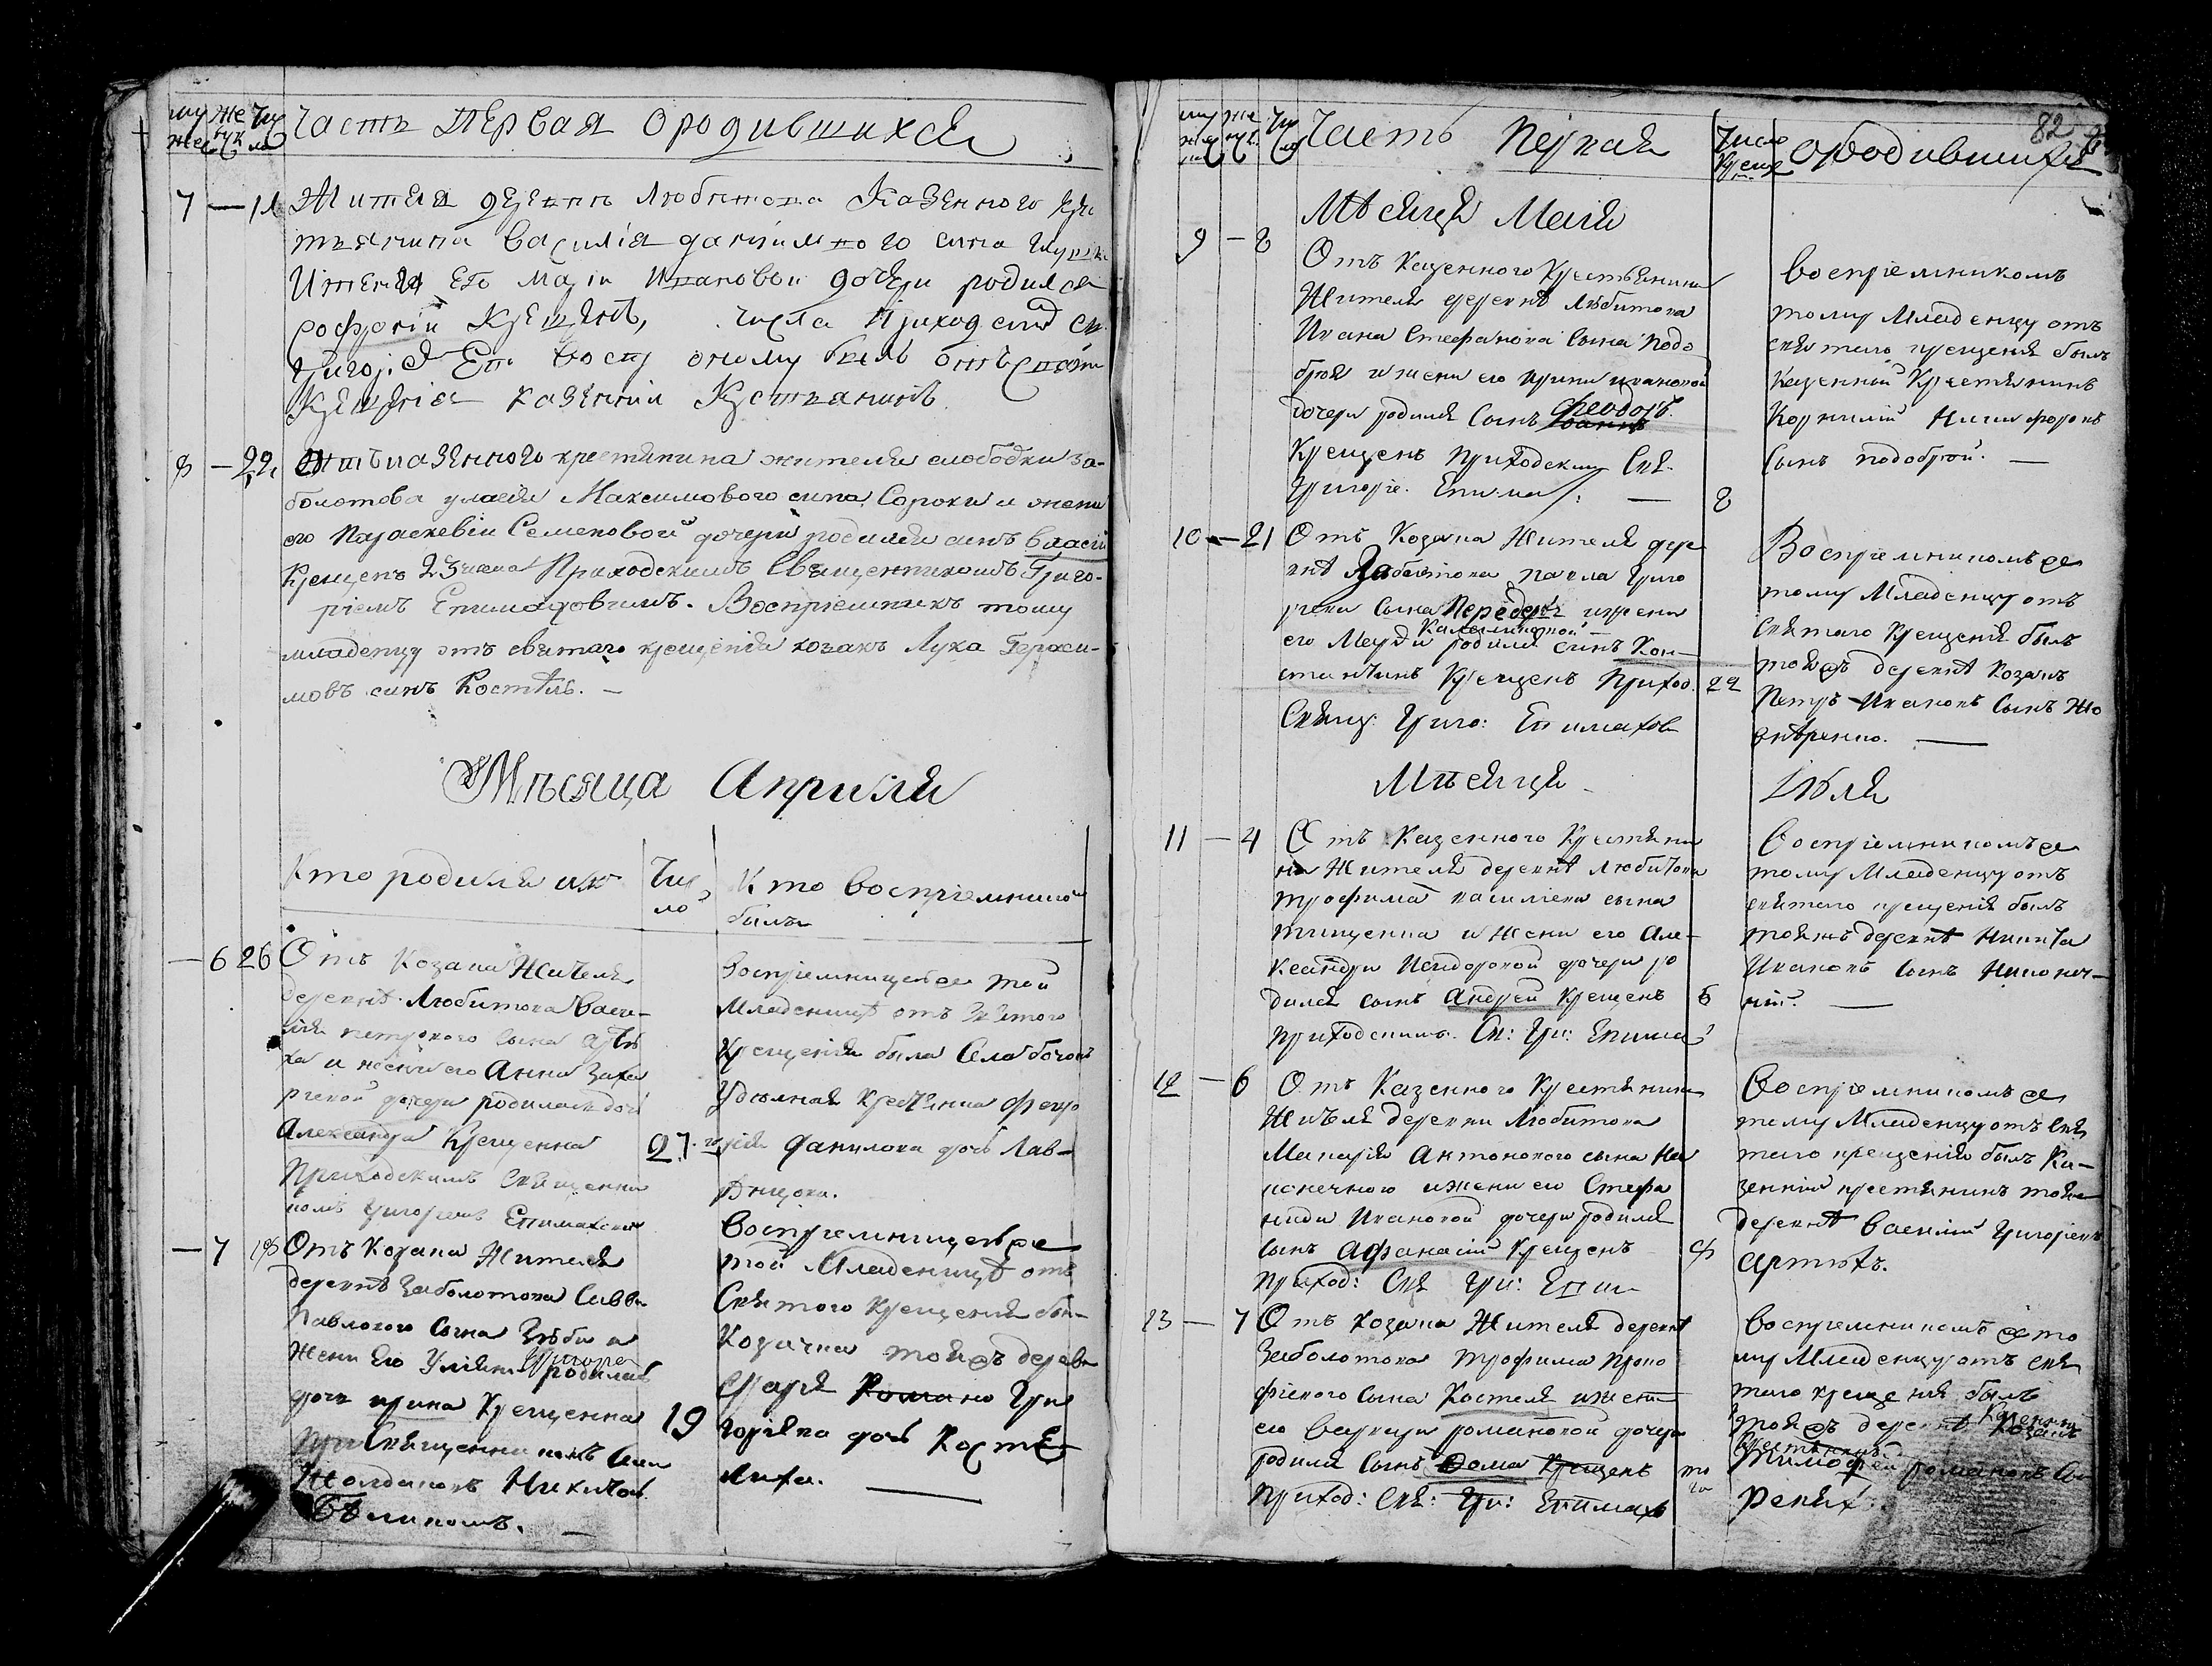 Часть Первая Ородившихся
7 — 11 Жителя деревнѣ Любитова Казенного Кре
стьянина Василія даніилового сина
Иженѣ Его Маріи Ивановой дочери родился
софроній Крещенъ, числа Приходским Св.
Григорі. Еп. Восп оному билъ отъ святаго
Крещенія казенній Крстьянинъ
8 — 22 Отъ казенного крестянина жителя слободки За-
болотова уласія Максимового сина Сороки и жени
его Параскевіи Семеновой дочери родился синъ Власій
Крещенъ 23 числа Приходскимъ Священникомъ Григо-
ріемъ Епимаховичемъ. Воспріемникъ тому
младенцу отъ святаго крещенія козакъ Лука Гераси-
мовъ синъ Костѣль. —
Мѣсяца Априля
Кто родился
Чис
ло
Кто воспріемникомъ
былъ
— 6 26 Отъ Козака Жителя
деревнѣ Любитова Васи-
лія петрового сына
ха и жени его Анни Заха
ріевой дочери родилась дочь
Александра Крещенна
Приходскимъ Священни
комъ Григоріемъ Епимахович
27
Воспріемницею той
Младеницѣ отъ Святого
Крещенія была Села
Удѣлная Крестянка Фео
дсія Данилова дочь Лав-
— 7 18 Отъ Козака Жителя
деревнѣ Заболотова Савви
Павлового Сына Зюби и
Жени Его Уліяни Григоре родилась
дочь ирина Крещенна
При Священникомъ
Никитою
Бѣликомъ. —
19
Воспріемницею
той Младеницѣ отъ
Святого Крещенія был
Козачка тояжъ дерев
Марія Романо Гри
горіева дочь Костѣ
лиха. —
82
Часть Первая
Число
Крещ
ородившихся
Мѣсяця Маія
9 — 8 Отъ Казенного Крестьянина
Жителя деревнѣ Любитова
Ивана Стефанова Сына Подо
брѣя и жени его ирини ивановой
дочери родился Сынъ Феодоръ
Іоаннъ
Крещенъ Приходским Свя.
Григоріе. Епима /: — 8
Воспріемникомъ
тому Младенцу отъ
святаго крещенія былъ
Казенній Крестянинъ
Корнилій Никифоровъ
Сынъ подобрѣй. —
10 — 21 Отъ Козака Жителя дере
внѣ Заболотова павла Григо
ріева Сына Передер ижени
его Марфи Калениковой родился синъ Кон-
стантинъ Крещенъ Приход. 22
Свящ: Григо: Епимахов
Воспріемникомъ се
тому Младенцу отъ
Святаго Крещенія былъ
тояжъ деревнѣ Козакъ
Петръ Ивановъ Сынъ
Мѣсяця Июля
11 — 4 Отъ Казенного Крестяни
на Жителя деревнѣ Любитова
трофима василіева сына
тищенка и Жени его Але-
ксандри Исидоровой дочери ро
дился сынъ Андрей Крещенъ 5
приходскимъ. Св: Гри: Епима
Воспріемникомъ се
тому Младенцу отъ
святаго крещенія былъ
тояжъ деревнѣ Никита
Ивановъ Сынъ Никонеч-
ній. —
12 — 6 Отъ Казенного Крестянина
Жителя деревни Любитова
Макарія Антонового сына На
конечного ижени его Стефа
ниди Ивановой дочери родился
сынъ Афанасій Крещенъ 8
приход: Свя Гри: Епи
Воспріемникомъ се
тому Младенцу отъ Свя
таго крещенія былъ Ка-
зенній крестянинъ тояже
деревнѣ Василій Григорієвъ
Артюхъ.
13 — 7 Отъ Козака Жителя деревнѣ
Заболотова Трофима Проко
фіевого Сына Костеля ижени
его Варвари романовой дочери
родился Сынъ Дома Крещенъ
приход: Свя: Гри: Епимахо
Воспріемникомъ се то
му Младенцу отъ свя
таго крещенія былъ
тояжъ деревнѣ Козакъ Казенній
крестянинъ
Тимофей романовъ